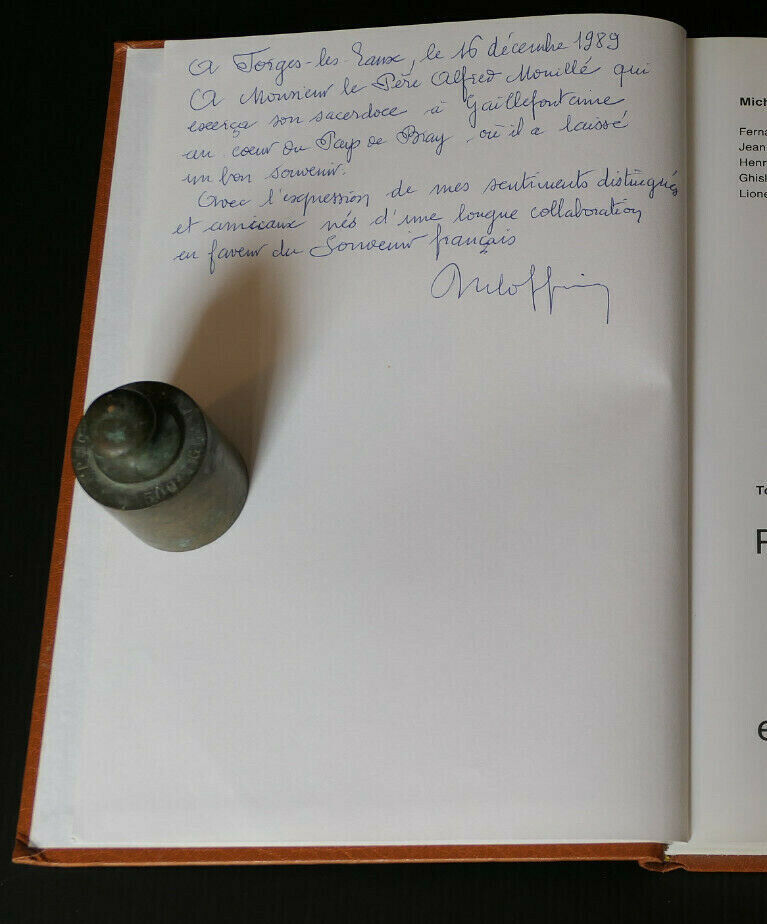 A Forges-les-Eaux, le 16 décembre 1989
A Monsieur le Père Alfred Mouillé qui
exerça son sacerdoce à Gaillefontaine
au coeur du Pays de Bray où il a laissé
un bon souvenir.
Avec l'expression de mes sentiments distingués
et amicaux nés d'une longue collaboration
en faveur du Souvenir français
Mich
Ferna
Jean
Henr
Ghisl
Lione
To
P
e